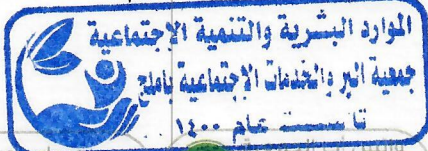 الموارد البشرية والتنمية الاجتماعية
جمعية البر والخدمات الاجتماعية باملج
تأسست عام ١٤٠٠